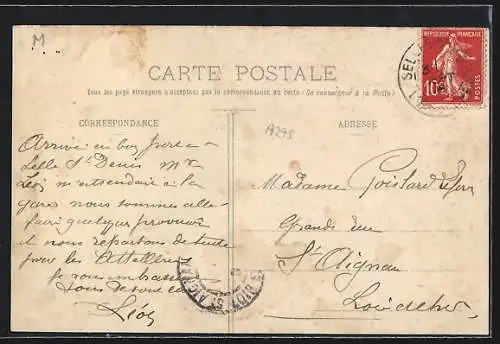 M
CARTE POSTALE
Tous les pays étrangers n'acceptent pas la correspondance au recto (Se renseigner à la Poste)
CORRESPONDANCE
ADRESSE
A295
REPUBLIQUE FRANÇAISE
10
POSTES
SELL
Arrivé en bon port a
Selle St Denis Mr
Léon m attendait à la
gare nous sommes allé
faire quelque
et nous repartons de suite
pour les
Je vous embrasse
tous
Léon
Madame
Grande rue
St Aignan
Loir et cher
ST AIGNAN